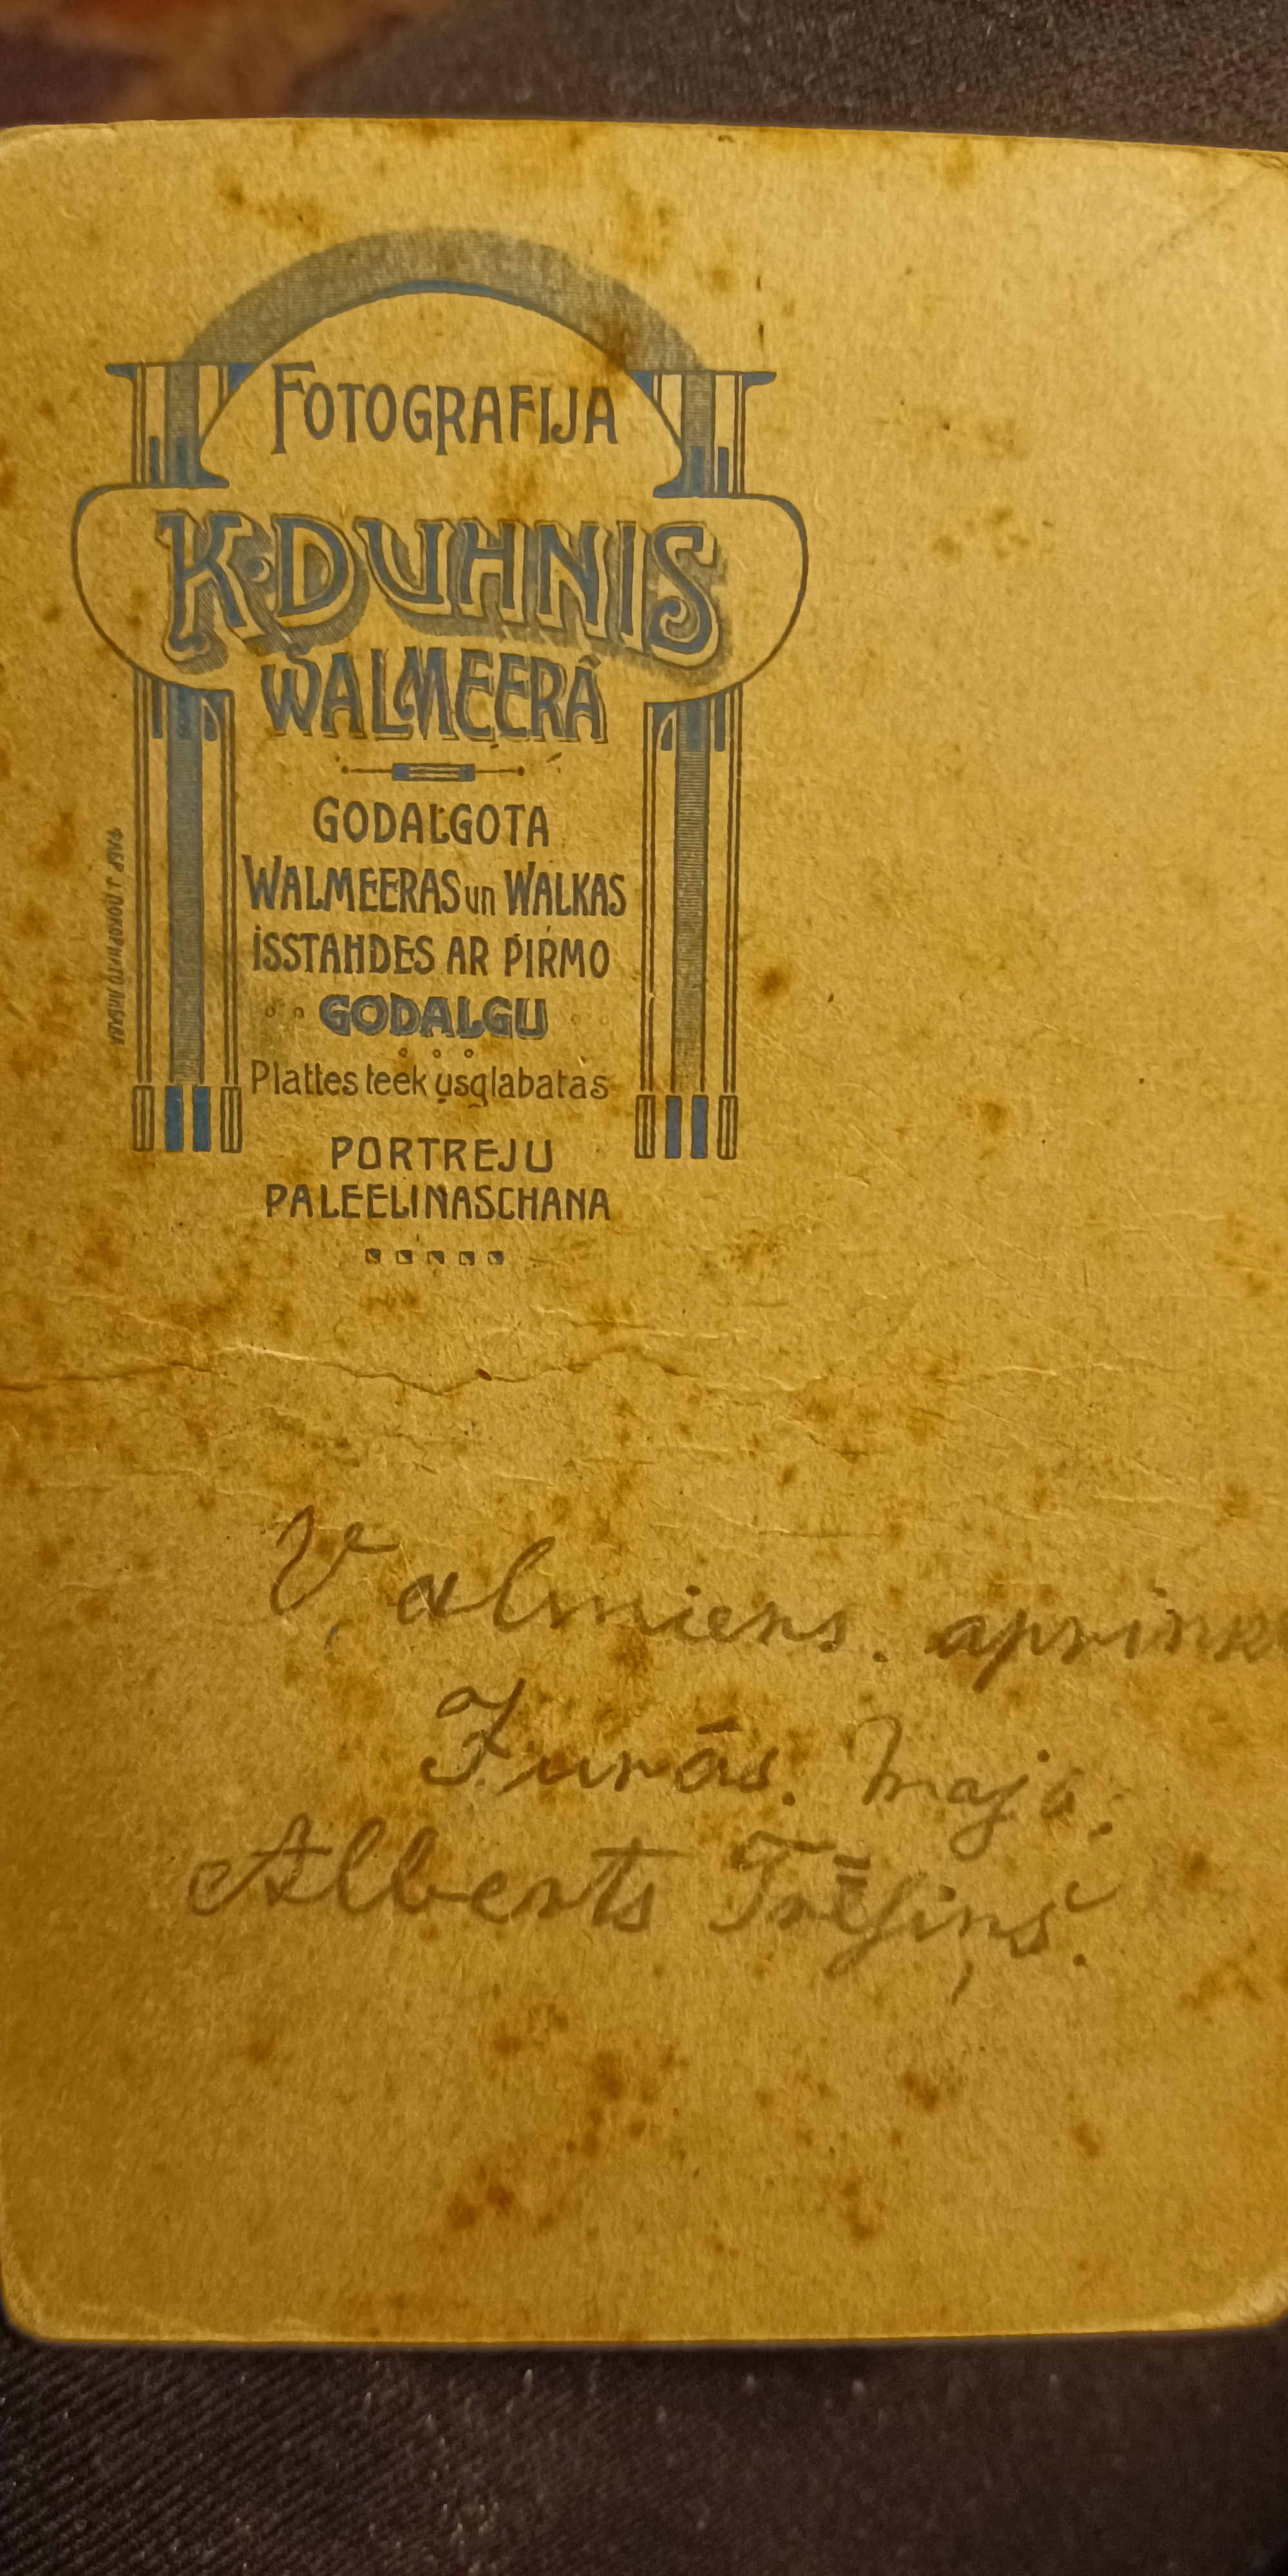 FOTOGRAFIJA
K. DUHNIS
WALMEERÁ
GODALGOTA
WALMEERAS un WALKAS
ISSTAHDES AR PIRMO
GODALGU
Plattes teek usglabatas
PORTREJU
PALEELINASCHANA
Valmiers. aprink
Jurás. maja.
Alberts